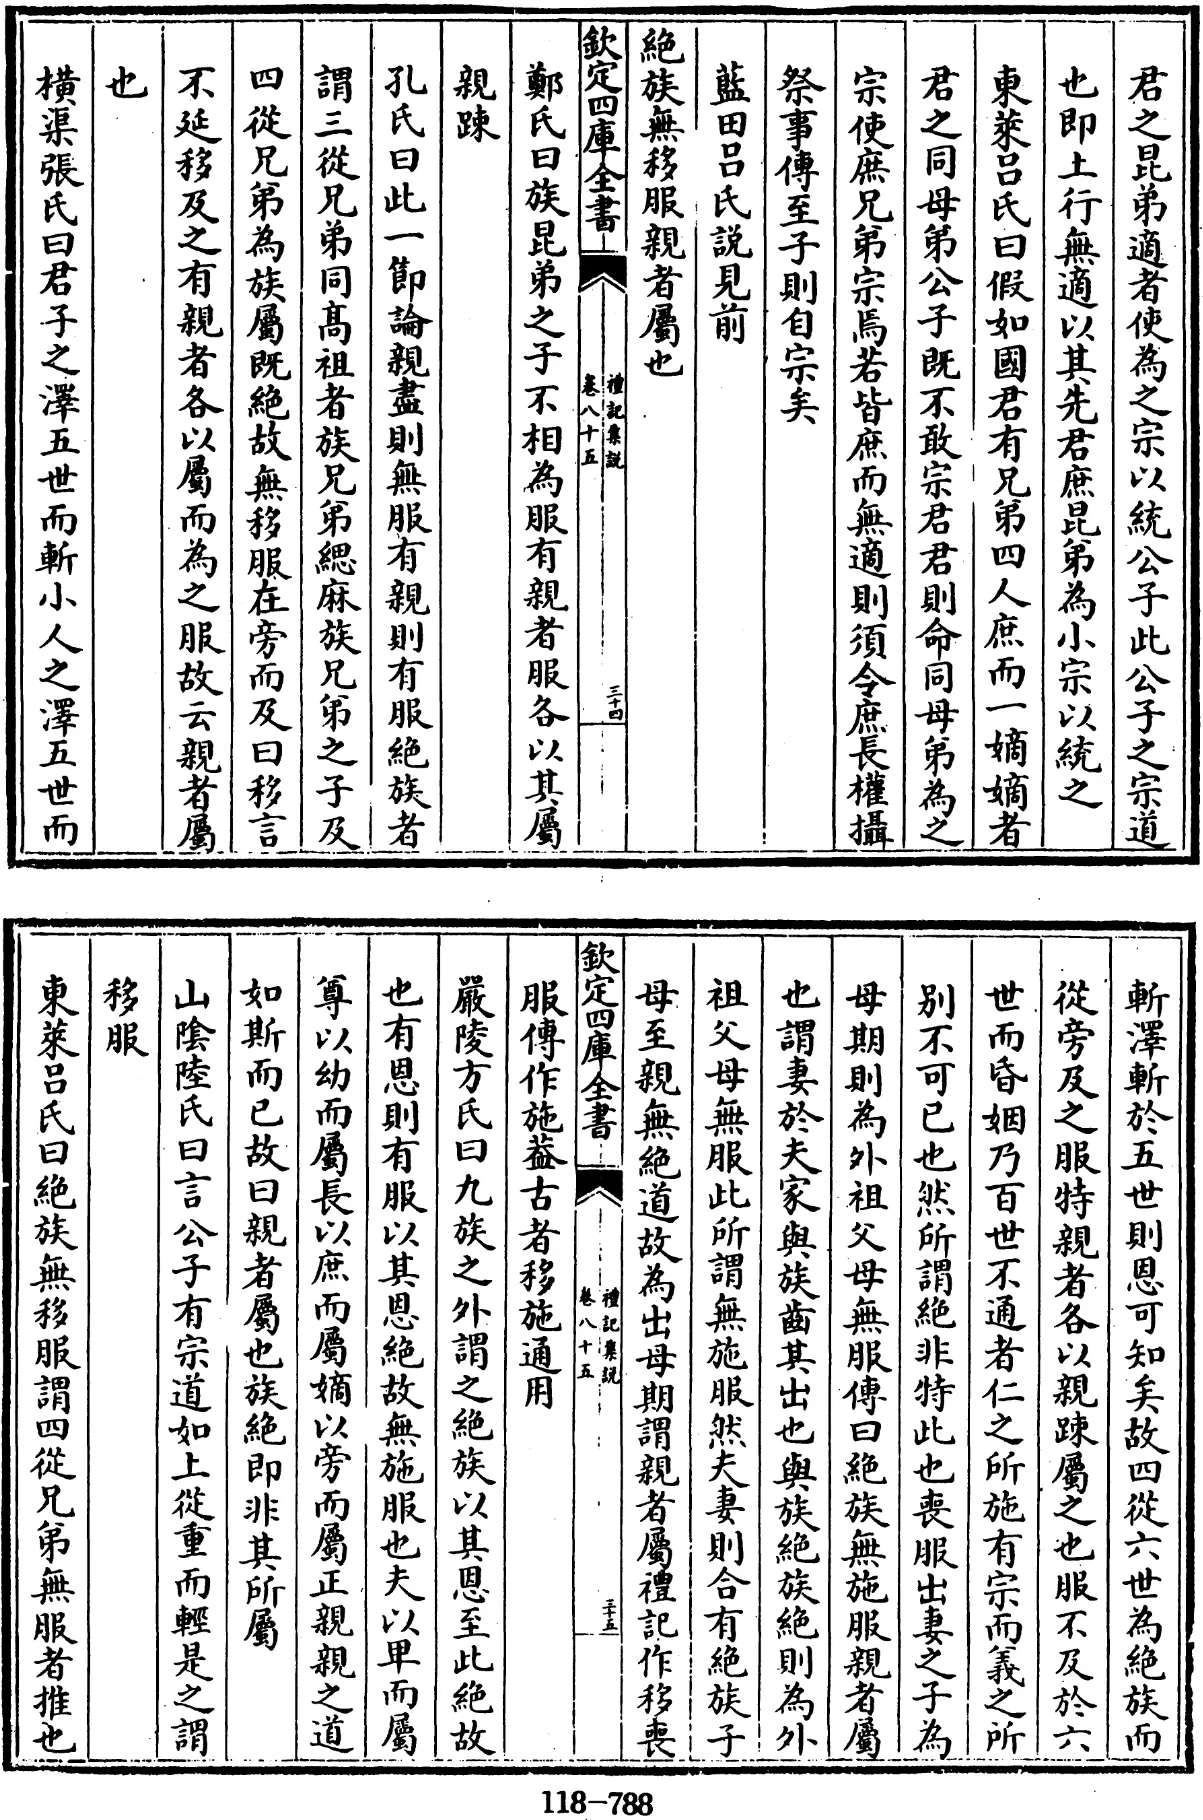 君之昆弟適者使為之宗以統公子此公子之宗道
也即士行無適以其先君庶昆弟為小宗以統之
東萊呂氏曰假如國君有兄弟四人庶而一嫡嫡者
君之同母弟公子既不敢宗君君則命同母弟為之
宗使庶兄弟宗焉若皆庶而無適則須令庶長權攝
祭事傳至子則自宗矣
藍田呂氏說見前
絶族無移服親者屬也
欽定四庫全書
禮記集說
卷八十五
三十四
鄭氏曰族昆弟之子不相為服有親者服各以其屬
親疎
孔氏曰此一節論親盡則無服有親則有服絶族者
謂三從兄弟同髙祖者族兄弟緦麻族兄弟之子及
四從兄弟為族屬既絶故無移服在旁而及曰移言
不延移及之有親者各以屬而為之服故云親者屬
也
橫渠張氏曰君子之澤五世而斬小人之澤五世而
斬澤斬於五世則恩可知矣故四從六世為絶族而
從旁及之服特親者各以親疎屬之也服不及於六
世而昏姻乃百世不通者仁之所施有宗而義之所
別不可已也然所謂絶非特此也喪服出妻之子為
母期則為外祖父母無服傳曰絶族無施服親者屬
也謂妻於夫家與族齒其出也與族絶族絶則為外
祖父母無服此所謂無施服然夫妻則合有絶族子
母至親無絶道故為出母期謂親者屬禮記作移喪
欽定四庫全書
禮記集說
卷八十五
三十五
服傳作施葢古者移施通用
嚴陵方氏曰九族之外謂之絶族以其恩至此絶故
也有恩則有服以其恩絶故無施服也夫以卑而屬
尊以幼而屬長以庶而屬嫡以旁而屬正親親之道
如斯而已故曰親者屬也族絶即非其所屬
山隂陸氏曰言公子有宗道如上從重而輕是之謂
移服
東萊呂氏曰絶族無移服謂四從兄弟無服者推也
118-788